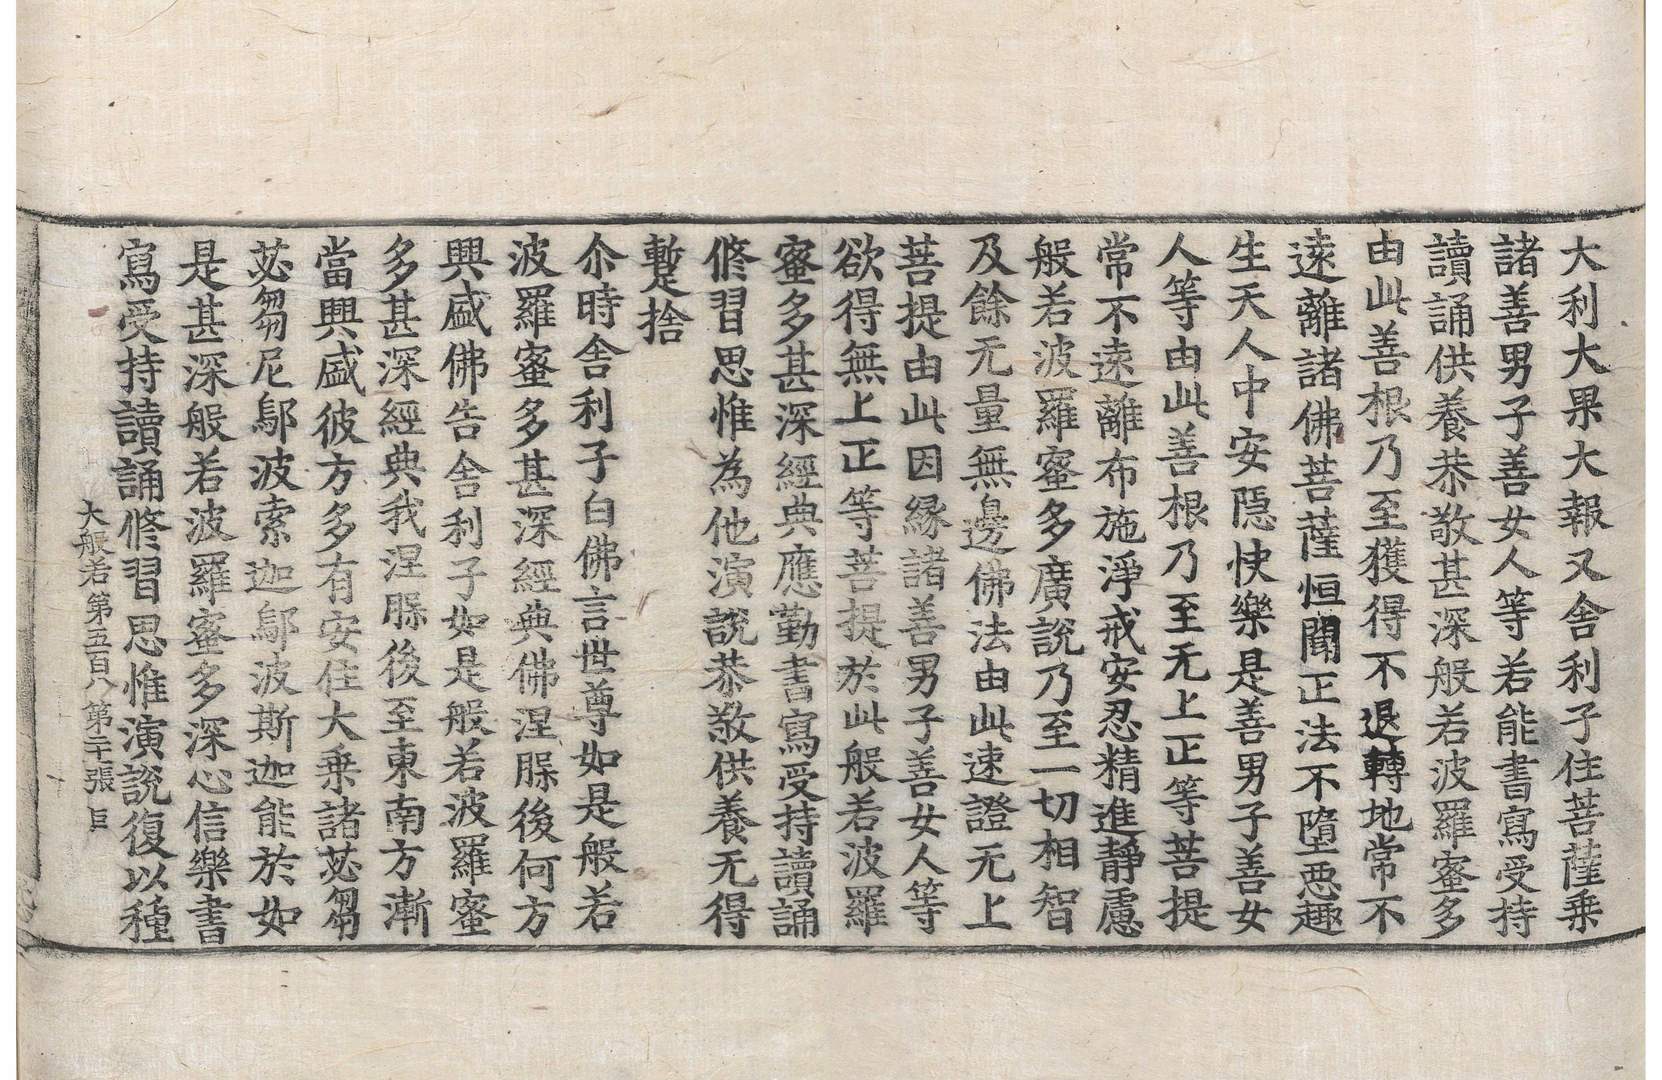 大利大果大報又舍利子住菩薩乗
諸善男子善女人等若能書寫受持
讀誦供養恭敬甚深般若波羅蜜多
由此善根乃至獲得不退轉地常不
遠離諸佛菩薩恒聞正法不墮惡趣
生天人中安隱快樂是善男子善女
人等由此善根乃至无上正等菩提
常不遠離布施淨戒安忍精進靜慮
般若波羅蜜多廣說乃至一切相智
及餘无量無邊佛法由此速證无上
菩提由此因縁諸善男子善女人等
欲得無上正等菩提於此般若波羅
蜜多甚深經典應勤書寫受持讀誦
修習思惟為他演說恭敬供養无得
暫捨
尒時舍利子白佛言世尊如是般若
波羅蜜多甚深經典佛涅槃後何方
興盛佛告舍利子如是般若波羅蜜
多甚深經典我涅槃後至東南方漸
當興盛彼方多有安住大乗諸苾芻
苾芻尼鄔波索迦鄔波斯迦能於如
是甚深般若波羅蜜多深心信樂書
寫受持讀誦修習思惟演說復以種
大般若第五百八 第二十張 巨